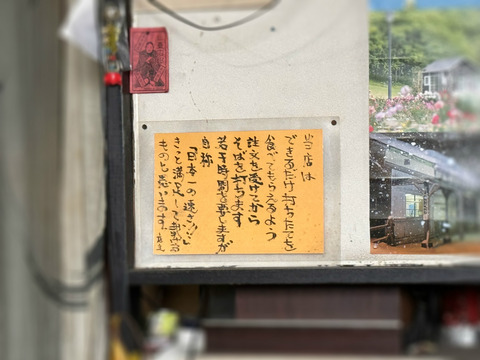 当店は
できるだけ打ちたてを
食べてもらえるよう
注文を受けてから
そばを打ちます
若干時間を要しますが
自称
「日本一の速さ」
きっと満足して頂ける
ものと思います。